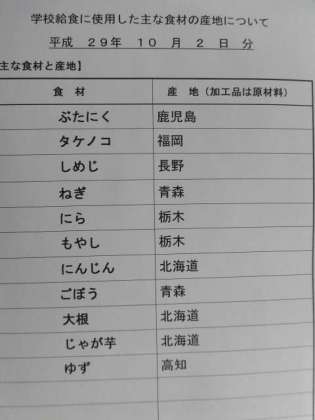 学校給食に使用した主な食材の産地について
平成 29年 10 月 2 日 分
主な食材と産地】
食 材 産 地（加工品は原材料）
ぶたにく 鹿児島
タケノコ 福岡
しめじ 長野
ねぎ 青森
にら 栃木
もやし 栃木
にんじん 北海道
ごぼう 青森
大根 北海道
じゃが芋 北海道
ゆず 高知